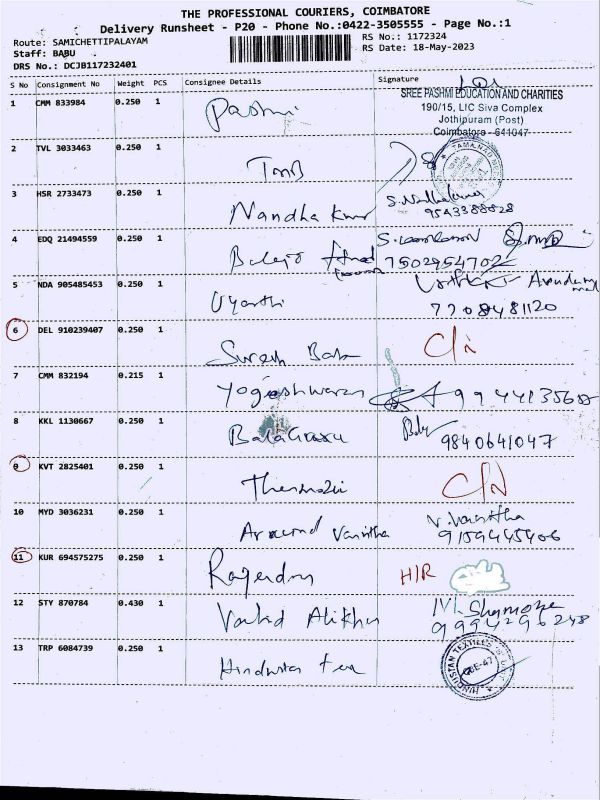 THE PROFESSIONAL COURIERS, COIMBATORE
Delivery Runsheet - P20 - Phone No.:0422-3505555 - Page No.:1
Route: SAMICHETTIPALAYAM RS No.: 1172324
Staff: BABU RS Date: 18-May-2023
DRS No.: DCJB117232401
S No Consignment No Weight PCS Consignee Details Signature
SREE PASHMI EDUCATION AND CHARITIES
1 CMM 833984 0.250 1 Pashmi 190/15, LIC Siva Complex
Jothipuram (Post)
Coimbatore - 641047
2 TVL 3033463 0.250 1 TMB
3 HSR 2733473 0.250 1 Nandha Kumar
9543388828
4 EDQ 21494559 0.250 1 Balaji
7502954702
5 NDA 905485453 0.250 1
7708481120
6 DEL 910239407 0.250 1 Suresh Babu
7 CMM 832194 0.215 1 Yogeshwaran 9944135608
8 KKL 1130667 0.250 1
9840641047
9 KVT 2825401 0.250 1
10 MYD 3036231 0.250 1 Aravind Vanitha V. Vanitha
9159445406
11 KUR 694575275 0.250 1 Rajendran H/R
12 STY 870784 0.430 1 Vahid Alikhan
9994296248
13 TRP 6084739 0.250 1 Hindustan Tex
HINDUSTAN TEXTILES
CBE-47